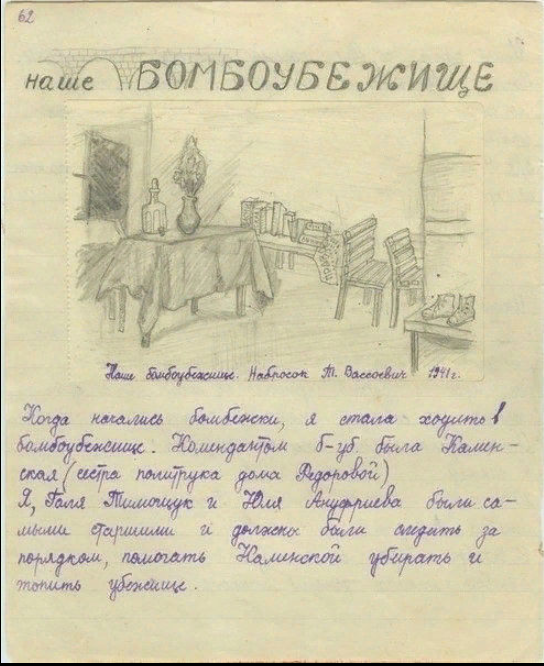 62
наше БОМБОУБЕЖИЩЕ
ПРАВДА
Наше бомбоубежище. Набросок Т. Вассоевич 1941 г.
Когда начались бомбежки, я стала ходить в
бомбоубежище. Комендантом б-уб. была Камен-
ская (сестра политрука дома Федоровой)
Я, Галя Тимощук и Юля Ануфриева были са-
мыми старшими и должны были следить за
порядком, помогать Каминской убирать и
топить убежище.